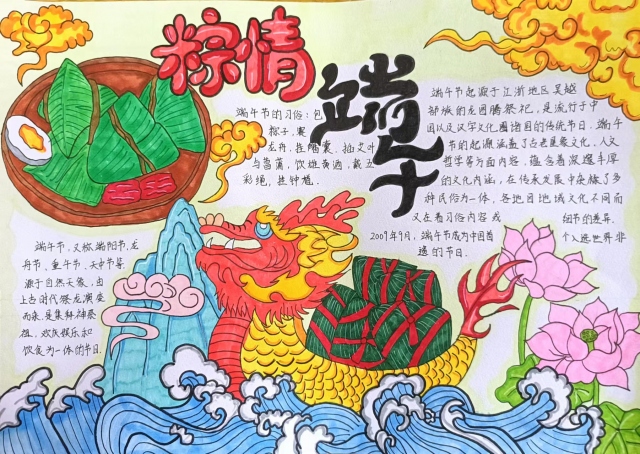 粽情
端午
端午节的习俗:包
粽子、赛
龙舟、挂香囊、插艾叶
与菖蒲、饮雄黄酒、戴五
彩绳、挂钟馗.
端午节起源于江浙地区吴越
部族的龙图腾祭祀,是流行于中
国以及汉字文化圈诸国的传统节日.端午
节的起源涵盖了古老星象文化、人文
哲学等方面内容,蕴含着深邃丰厚
的文化内涵,在传承发展中杂糅了多
种民俗为一体,各地因地域文化不同而
又存着习俗内容或 细节的差异.
2009年9月,端午节成为中国首 个入选世界非
遗的节日.
端午节,又称端阳节、龙
舟节、重午节、天中节等
源于自然天象,由
上古时代祭龙演变
而来,是集拜神祭
祖、欢庆娱乐和
饮食为一体的节日.